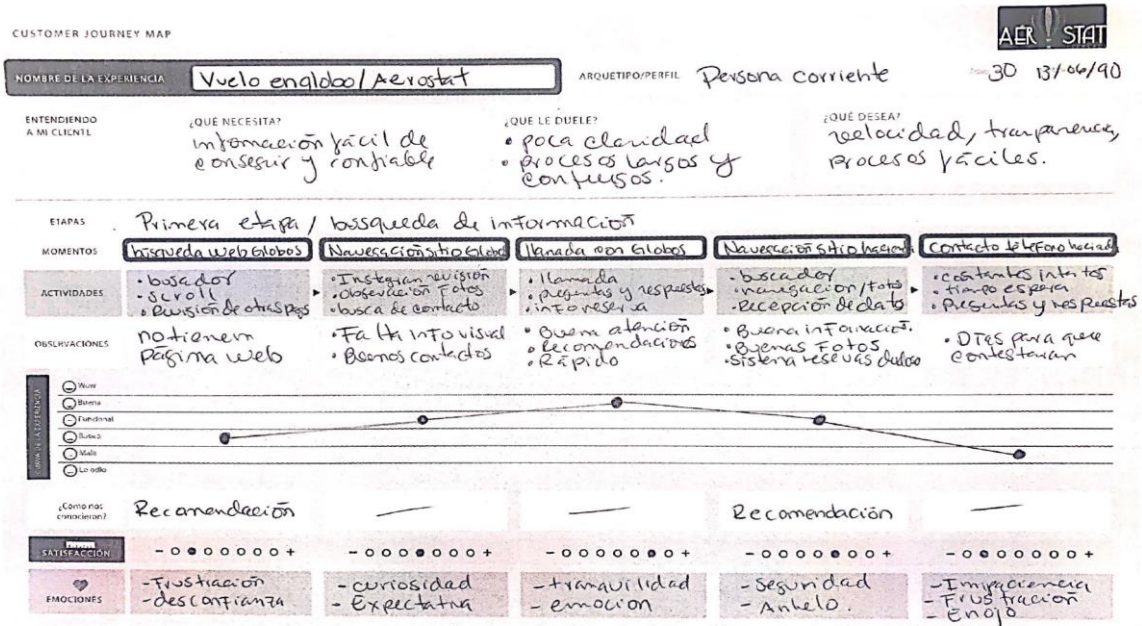 CUSTOMER JOURNEY MAP
AÉR STAT
NOMBRE DE LA EXPERIENCIA
Vuelo englobo/Aerostat
ARQUETIPO/PERFIL
Persona corriente
30 13/06/90
ENTENDIENDO
A MI CLIENTE
¿QUÉ NECESITA?
información fácil de
conseguir y confiable
¿QUE LE DUELE?
• poca claridad
• procesos largos y
confusos.
¿QUÉ DESEA?
velocidad, tranparencia,
procesos fáciles.
ETAPAS
Primera etapa / bussqueda de información
MOMENTOS
búsqueda web Globos
Navegación sitio Globo
llamada con Globos
Navegación sitio hacien
Contacto teléfono haciend
ACTIVIDADES
• busador
• scroll
• Revisión de otras pags
• Instagran revisión
• Observación Fotos
• busca de contacto
• llamada
• preguntas y respuestas
• info reserva
• buscador
• navegación/fotos
• Recepción de datos
• costantes intentos
• tiempo espera
• Preguntas y respuestas
OBSERVACIONES
no tienem
pagina web
• Falta info visual
• Buenos contactos
• Buena atención
• Recomendaciones
• Rápido
• Buena informació.
• Buenas Fotos
• Sistema reservas dudoso
• Dias para que
contestaran
CURVA DE LA EXPERIENCIA
Wow
Buena
Funcional
Básica
Mala
Lo odio
¿Como nos
conocieron?
Recomendación
Recomendación
SATISFACCIÓN
- +
- +
- +
- +
- +
EMOCIONES
- Frustración
- desconfianza
- curiosidad
- Expectativa
- tranquilidad
- emocion
- Seguridad
- Anhelo.
- Impaciencia
- Frustración
- Enojo